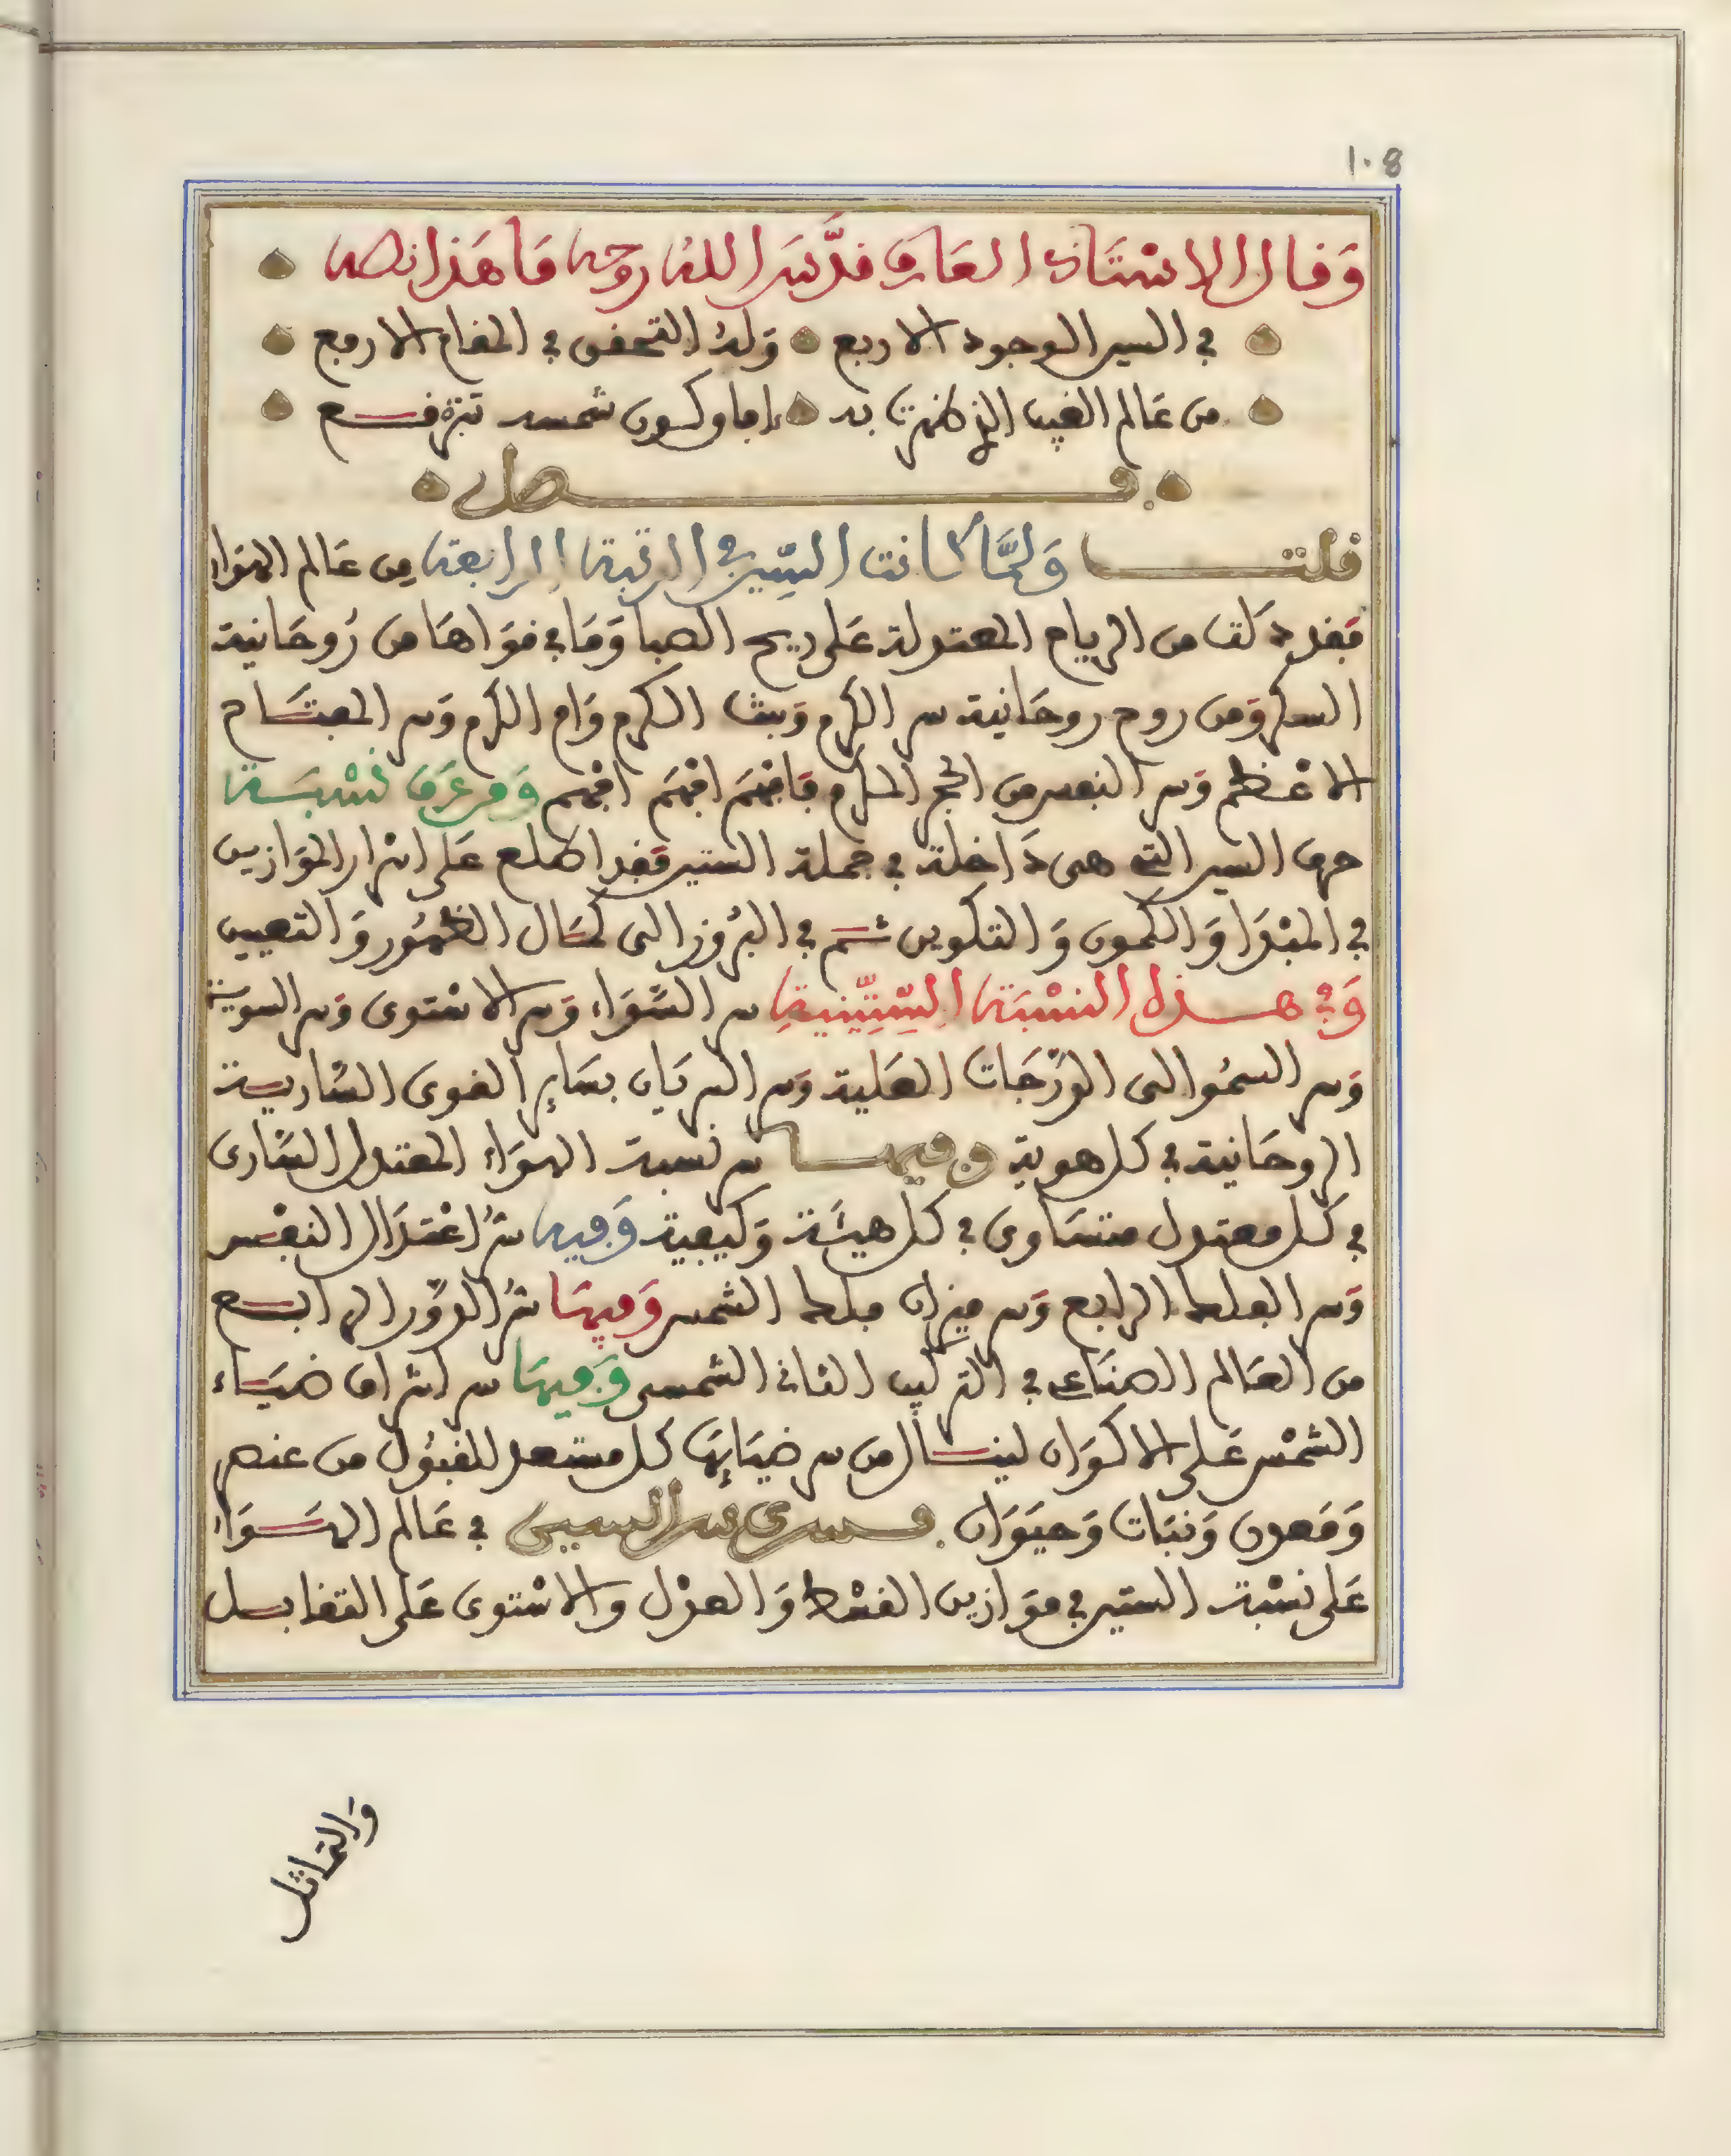 108
وَقال الاسْتَاذ العَارف قدَّسَ اللهُ روحه مَا هَذا نصه
في السير الوجود الاربع وَله التحقق في المقام الارفع
من عَالم الغيب الذي ظهرت به شمسه
فصل
قلت وَلمَّا كانت السِّين في الرتبة الرابعة مِن عَالم الهوَاء
فقد دَلت من الرياح المعتدلة عَلى ريح الصبا وَمَا في قوَاهَا من رُوحَانية
السكر وَمن روح روحَانية سر الكرم وَبنت الكرم وَام الكرم وَسر المفتَاح
الاعْظم وَسر النفس من الحجر المكرم فَافهَم افهَم افهَم وَمن عَرَفَ نسْبَة
حرف السين التي هي دَاخلة في جملة الستين فقد اطلع عَلى اسْرار الموَازين
في المبْدَا وَالكمون وَالتكوين ثم في البرُوز الى كمَال الظهُور وَالتعيين
وَفي هذه النسْبَة السِّتِّينيةِ سر السَّوَاء وَسر الاسْتوى وَسر السوية
وَسر السمُو الى الدَّرَجَات العَلية وَسر السريَان بسَاير القوى السَّارية
الروحَانية في كل هوية وفيها سر نسبة الهوَاء المعتدل السَّارى
في كل معتدل متسَاوى في كل هيئَة وَكيفية وَفيه سرُّ اعْتدَال النفْس
وَسر الفلك الرابع وَسر ميزان فلك الشمس وَفيهَا سرُّ الدوْر الرابع
من العَالم الصنَاعي في التركيب الثاني الشمسي وَفيهَا سر اشرَاق ضيَاء
الشمْس عَلى الاكوَان لينال من سر ضيَايهَا كل مستعد للقبُول من عنصر
وَمَعدن وَنبَات وَحيَوَان فسرى سر السين في عَالم الهَوَاء
عَلى نسْبة الستين في موَازين القسْط وَالعدْل والاسْتوى عَلى التقابل
وَالتماثل